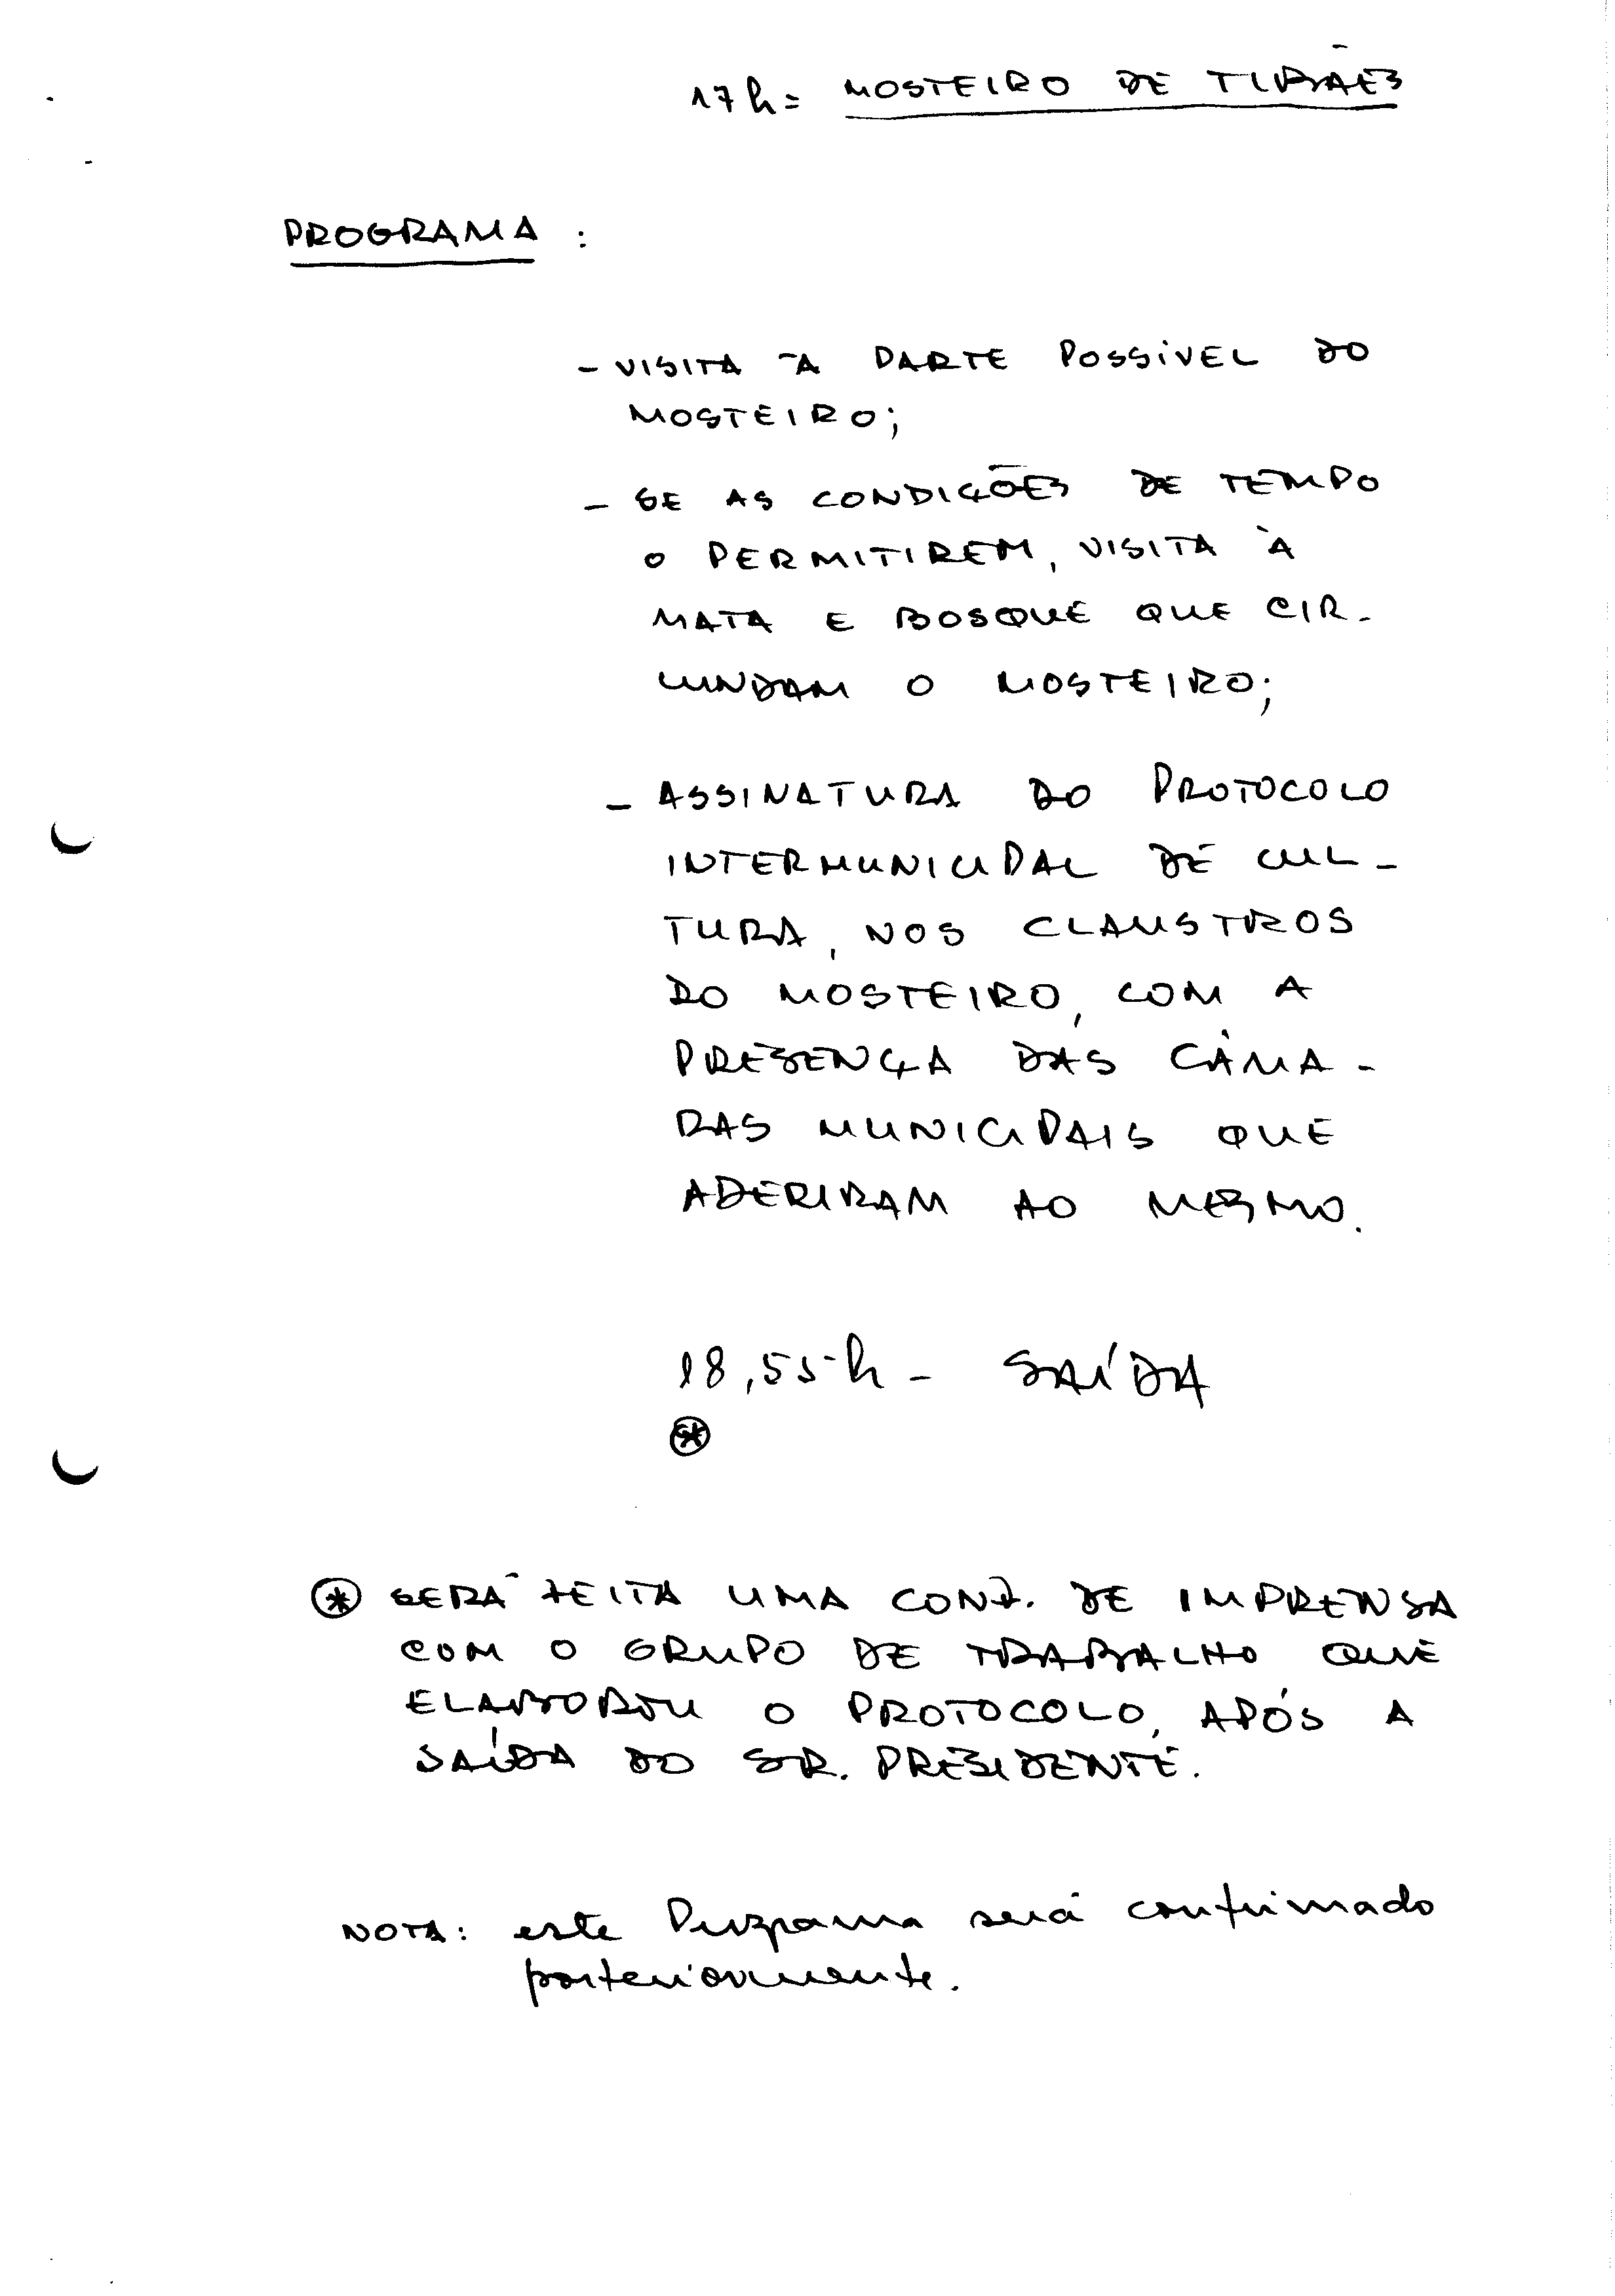 17h = MOSTEIRO DE TIBÃES
PROGRAMA :
- VISITA À PARTE POSSÍVEL DO
MOSTEIRO;
- SE AS CONDIÇÕES DE TEMPO
O PERMITIREM, VISITA À
MATA E BOSQUE QUE CIR-
CUNDAM O MOSTEIRO;
- ASSINATURA DO PROTOCOLO
INTERMUNICIPAL DE CUL-
TURA, NOS CLAUSTROS
DO MOSTEIRO, COM A
PRESENÇA DAS CÂMA-
RAS MUNICIPAIS QUE
ADERIRAM AO MESMO.
18,55h - SAÍDA
*
* SERÁ FEITA UMA CONF. DE IMPRENSA
COM O GRUPO DE TRABALHO QUE
ELABOROU O PROTOCOLO, APÓS A
SAÍDA DO SR. PRESIDENTE.
NOTA: este Programa será confirmado
posteriormente.